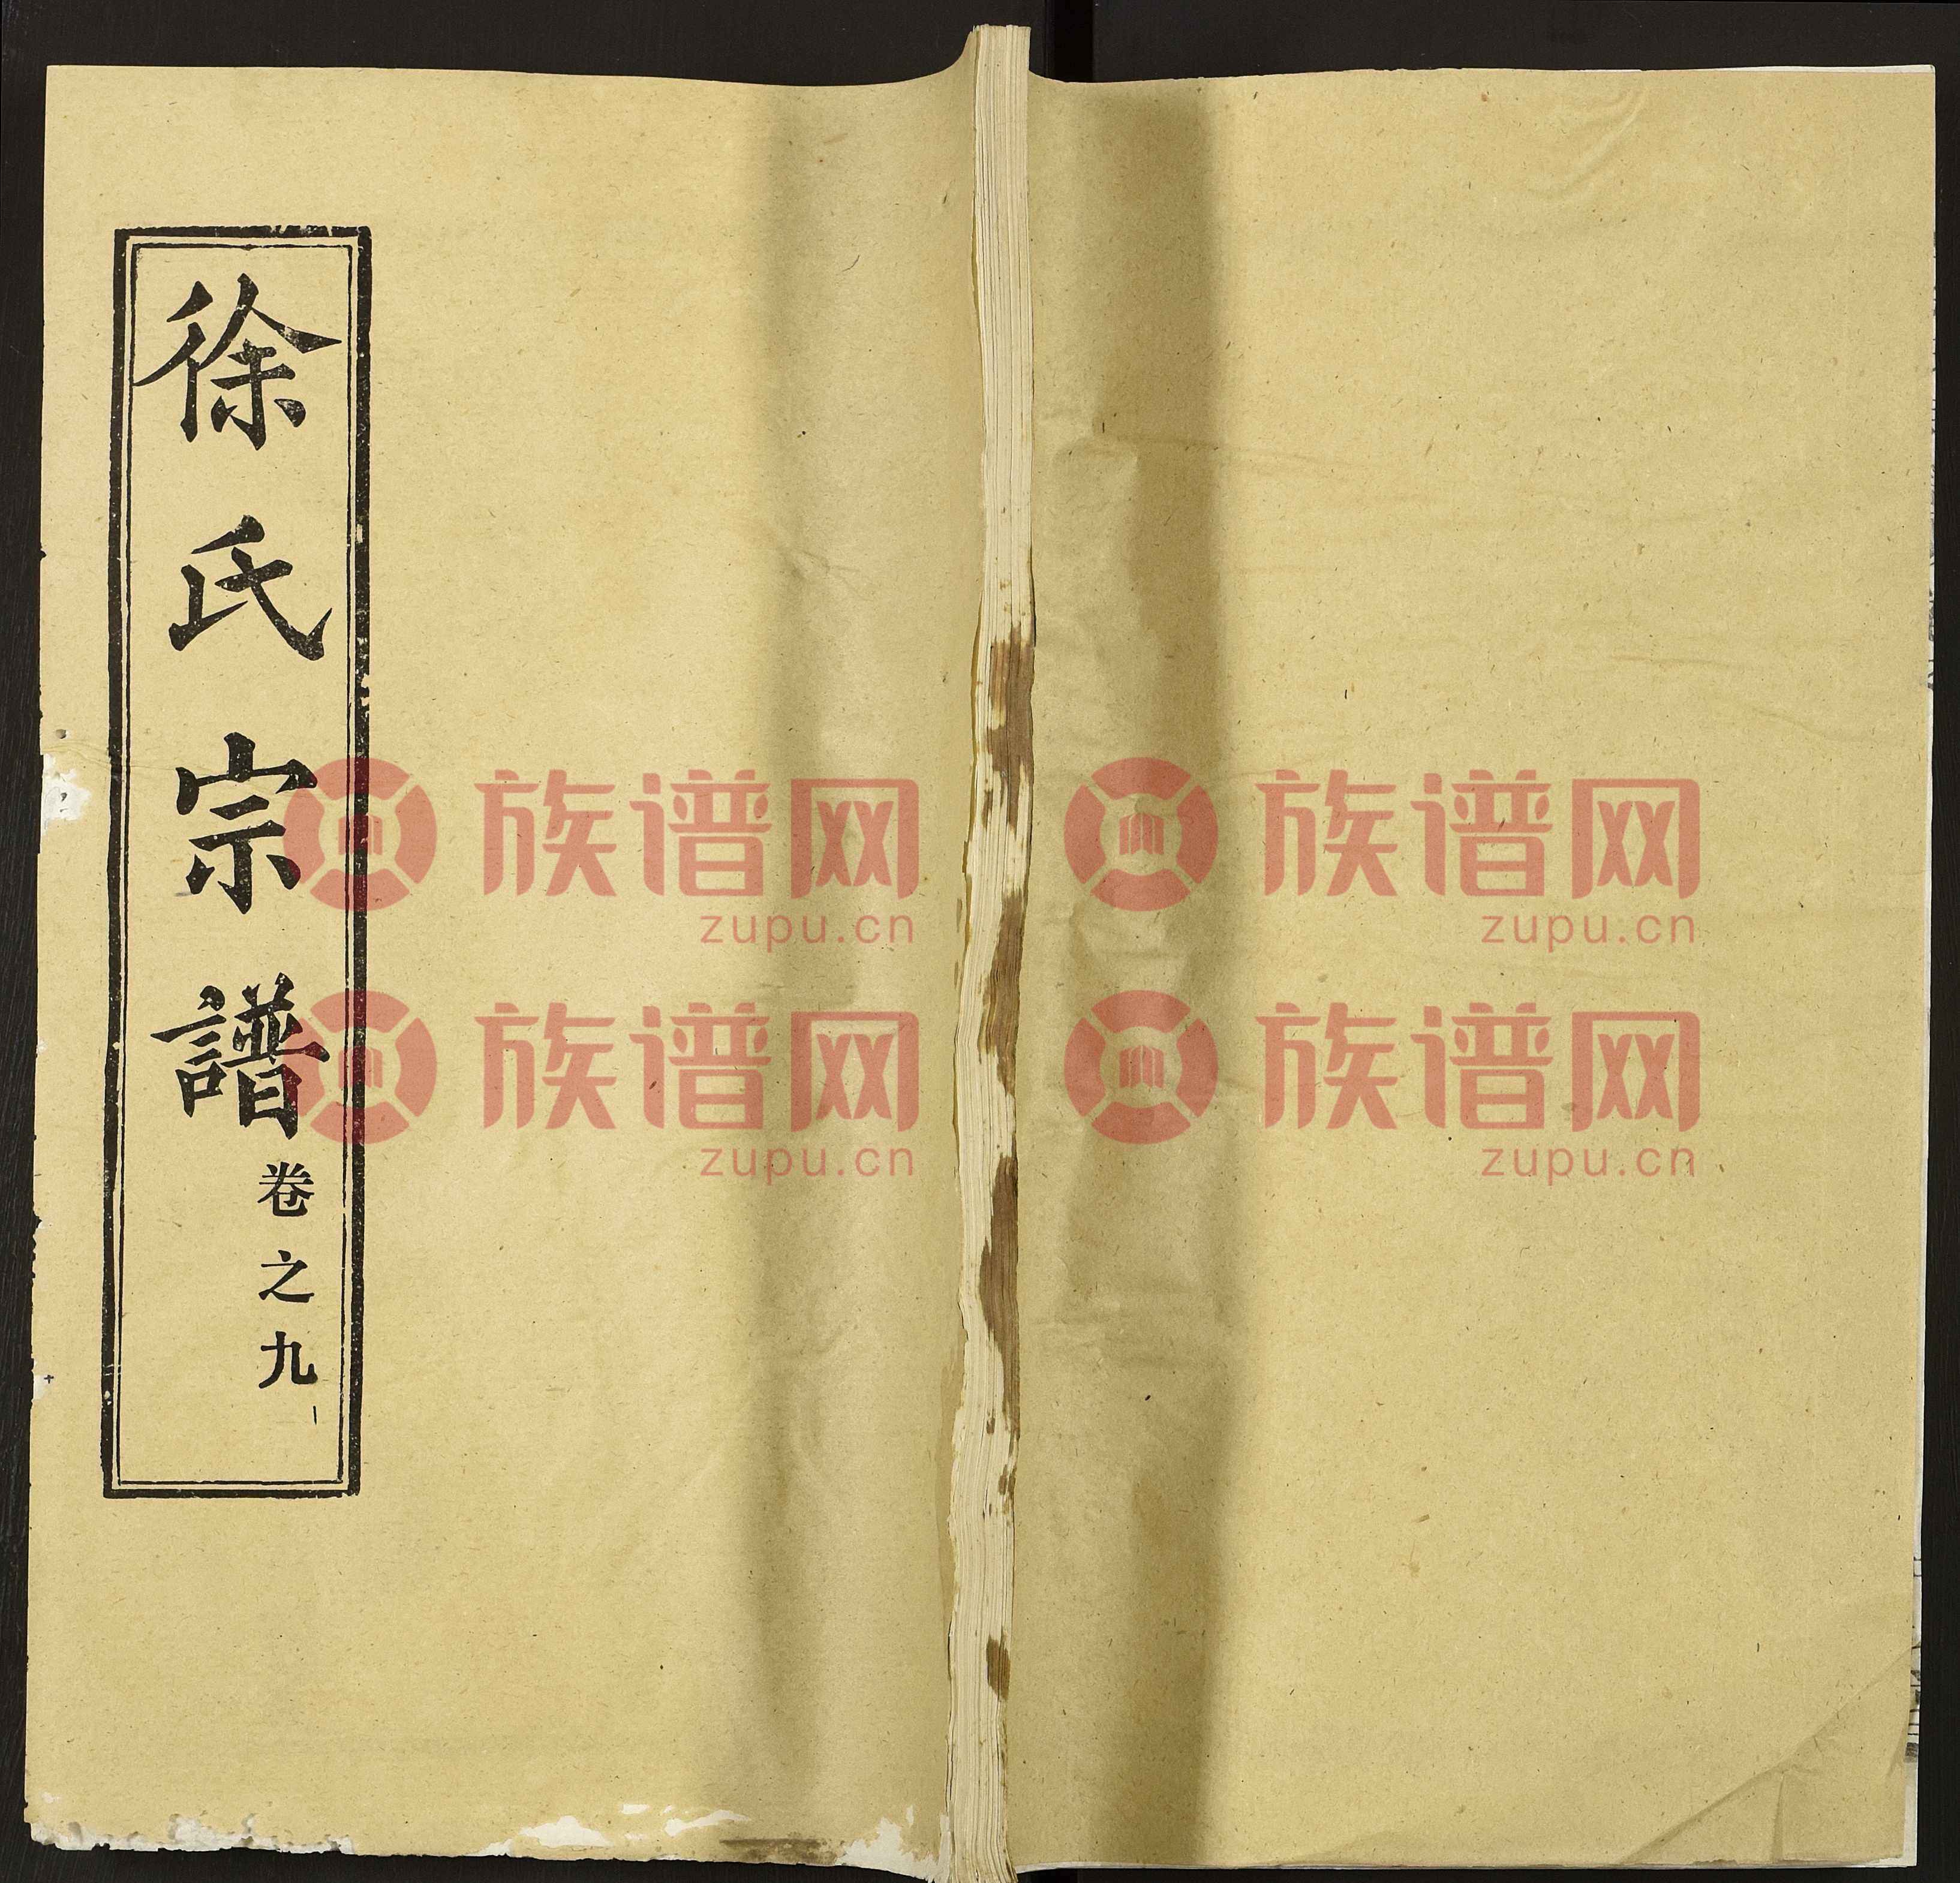 徐氏宗譜
卷之九
族谱网 族谱网
zupu.cn zupu.cn
族谱网 族谱网
zupu.cn zupu.cn